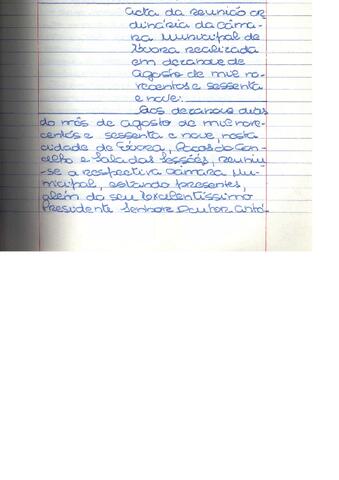 Acta da reunião or
dinária da Câma-
ra Municipal de
Évora realizada
em dezanove de
Agosto de mil no-
vecentos e sessenta
e nove.
Aos dezanove dias
do mês de Agosto de mil nove-
centos e sessenta e nove, nesta
cidade de Évora, Paços do Con-
celho e Sala das Sessões, reuniu-
-se a respectiva Câmara Mu-
nicipal, estando presentes,
além do seu Excelentíssimo
Presidente Senhor Doutor Antó-